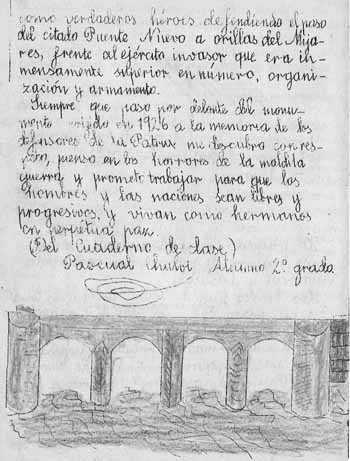 como verdaderos héroes defendiendo el paso
del citado Puente Nuevo a orillas del Mija-
res, frente al ejército invasor que era in-
mensamente superior en numero, organi-
zación y armamento.
Siempre que paso por delante del monu-
mento erijido en 1926 a la memoria de los
defensores de la Patria me descubro con res-
peto, pienso en los horrores de la maldita
guerra y prometo trabajar para que los
hombres y las naciones sean libres y
progresivos, y vivan como hermanos
en perpetua paz.
(Del Cuaderno de clase)
Pascual Alumno 2º grado